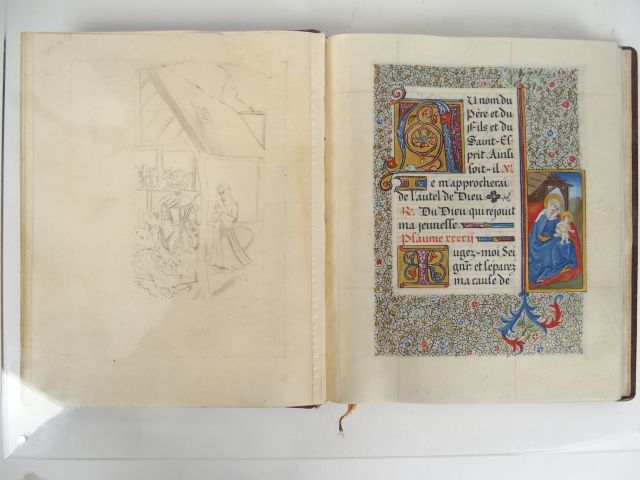 AU nom du
Père et du
Fils et du
Saint-Es-
prit. Ainsi
soit-il. ℣.
Je m'approcherai
de l'autel de Dieu
℟. Du Dieu qui rejouit
ma jeunesse.
Psaume xxxxij
Jugez-moi Sei
gnr. et separez
ma cause de